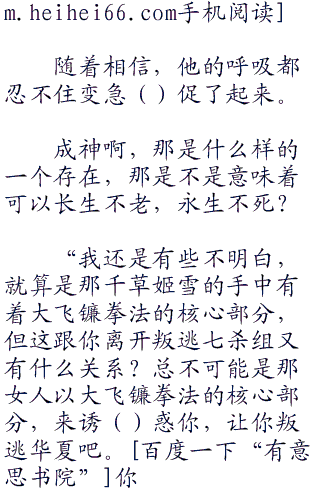 m.heihei66.com手机阅读]
随着相信，他的呼吸都
忍不住变急（）促了起来。
成神啊，那是什么样的
一个存在，那是不是意味着
可以长生不老，永生不死？
“我还是有些不明白，
就算是那千草姬雪的手中有
着大飞镰拳法的核心部分，
但这跟你离开叛逃七杀组又
有什么关系？总不可能是那
女人以大飞镰拳法的核心部
分，来诱（）惑你，让你叛
逃华夏吧。[百度一下“有意
思书院”]你